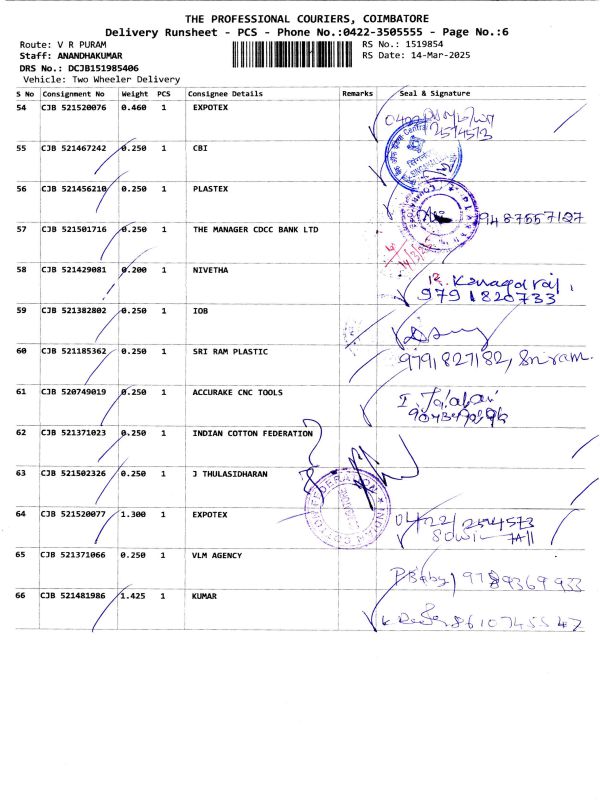 THE PROFESSIONAL COURIERS, COIMBATORE
Delivery Runsheet - PCS - Phone No.:0422-3505555 - Page No.:6
Route: V R PURAM RS No.: 1519854
Staff: ANANDHAKUMAR RS Date: 14-Mar-2025
DRS No.: DCJB151985406
Vehicle: Two Wheeler Delivery
S No Consignment No Weight PCS Consignee Details Remarks Seal & Signature
54 CJB 521520076 0.460 1 EXPOTEX
55 CJB 521467242 0.250 1 CBI
56 CJB 521456210 0.250 1 PLASTEX
57 CJB 521501716 0.250 1 THE MANAGER CDCC BANK LTD 9487557127
58 CJB 521429081 0.200 1 NIVETHA R. Kanagaraj,
9791820733
59 CJB 521382802 0.250 1 IOB
60 CJB 521185362 0.250 1 SRI RAM PLASTIC 9791827182, Sriram.
61 CJB 520749019 0.250 1 ACCURAKE CNC TOOLS
62 CJB 521371023 0.250 1 INDIAN COTTON FEDERATION
63 CJB 521502326 0.250 1 J THULASIDHARAN
64 CJB 521520077 1.300 1 EXPOTEX 0422/2544573
65 CJB 521371066 0.250 1 VLM AGENCY
66 CJB 521481986 1.425 1 KUMAR 8610745547